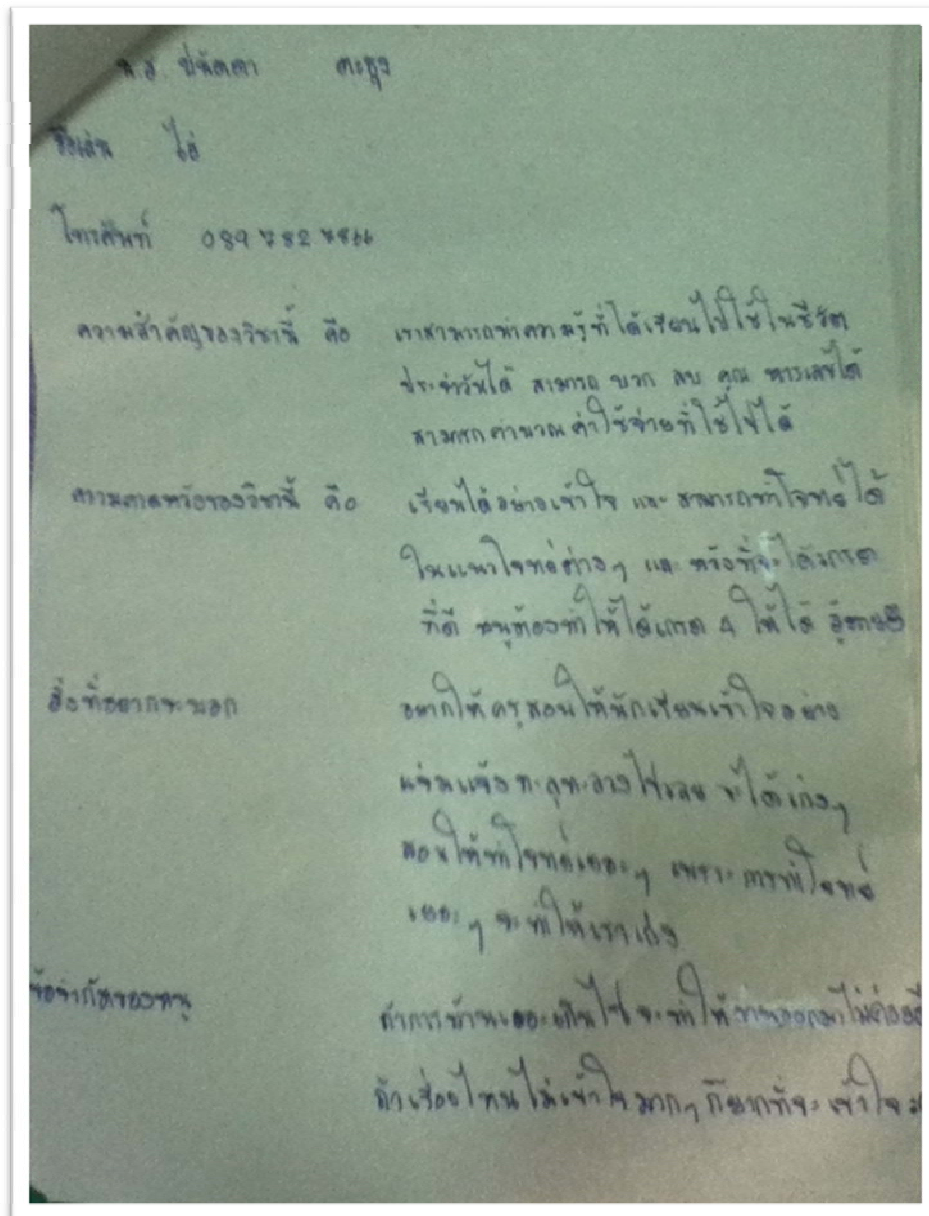 น.ส ปนัดดา
ชื่อเล่น
โทรศัพท์ 089
ความสำคัญของวิชานี้ คือ เราสามารถนำความรู้ที่ได้เรียนไปใช้ในชีวิต
ประจำวันได้ สามารถ บวก ลบ คูณ หารเลขได้
สามารถคำนวณค่าใช้จ่ายที่ใช้ไปได้
ความคาดหวังของวิชานี้ คือ เรียนได้อย่างเข้าใจ และ สามารถทำโจทย์ได้
ในแนวโจทย์ต่างๆ และ หวังที่จะได้เกรด
ที่ดี หนูต้องทำให้ได้เกรด 4 ให้ได้
สิ่งที่อยากจะบอก อยากให้ครูสอนให้นักเรียนเข้าใจอย่าง
แจ่มแจ้ง ทะลุทะลวงไปเลย จะได้เก่งๆ
สอนให้ทำโจทย์เยอะๆ เพราะ การทำโจทย์
เยอะๆ จะทำให้เราเก่ง
ข้อจำกัดของหนู ถ้าการบ้านเยอะเกินไป จะทำให้งานออกมาไม่ค่อยดี
ถ้าเรื่องไหนไม่เข้าใจมากๆ ก็ยากที่จะเข้าใจ